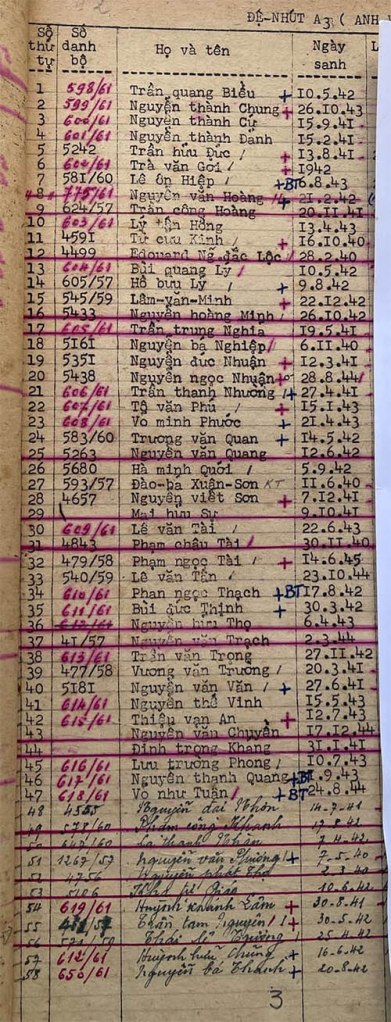 ĐỆ-NHỨT A3 ( ANH
Số thứ tự Số danh bộ Họ và tên Ngày sanh
1 598/61 Trần quang Biểu + 10.5.42
2 599/61 Nguyễn thành Chung + 26.10.43
3 600/61 Nguyễn thành Cự 15.9.41
4 601/61 Nguyễn thành Danh 15.2.41
5 5242 Trần hữu Đức / + 13.8.41
6 602/61 Trà văn Gởi / + 1942
7 581/60 Lê ôn Hiệp / +BT 6.8.43
8 775/61 Nguyễn văn Hoàng + 21.2.42
624/57 Trần công Hoàng 20.11.41
10 603/61 Lý tấn Hồng 13.4.43
11 4591 Từ cưu Kinh / + 16.10.40
12 4499 Edouard Ng. đắc Lộc / 28.2.40
13 604/61 Bùi quang Lý / 10.5.42
14 605/57 Hồ bưu Lý / + 9.8.42
15 545/59 Lâm-văn-Minh + 22.12.42
16 5433 Nguyễn hoàng Minh / 26.10.42
17 605/61 Trần trung Nghĩa 19.5.41
18 5161 Nguyễn bá Nghiệp / 6.11.40
19 5351 Nguyễn đức Nhuận + 12.3.41
20 5438 Nguyễn ngọc Nhuận + 28.8.44
21 606/61 Trần thanh Nhương / + 27.4.41
22 607/61 Tô văn Phú / + 15.1.43
23 608/61 Võ minh Phước + 21.4.43
24 583/60 Trương văn Quan + 14.5.42
25 5263 Nguyễn văn Quang 12.6.42
26 5680 Hà minh Quới / 5.9.42
27 593/57 Đào-bá Xuân-Sơn KT 11.6.40
28 4657 Nguyễn viết Sơn + 7.12.41
29 Mai hữu Sự 9.10.41
30 609/61 Lê văn Tài / 22.6.43
31 4843 Phạm châu Tài / 30.11.40
32 479/58 Phạm ngọc Tài / + 14.6.45
33 540/59 Lê văn Tấn / 23.10.44
34 610/61 Phan ngọc Thạch +BT 17.8.42
35 611/61 Bùi đức Thịnh + 30.3.42
36 612/61 Nguyễn hữu Thọ 6.4.43
37 41/57 Nguyễn văn Trạch 2.3.44
38 613/61 Trần văn Trọng 27.11.42
39 477/58 Vương văn Trương / 20.3.41
40 5181 Nguyễn văn Văn / + 27.6.41
41 614/61 Nguyễn thế Vinh 15.5.43
42 615/61 Thiệu vạn An + 12.7.43
43 Nguyễn văn Chuyền 17.12.44
44 Đinh trọng Khang 31.1.41
45 616/61 Lưu trương Phong / 10.7.43
46 617/61 Nguyễn thạnh Quang +BT .9.43
47 618/61 Võ như Tuấn / +BT 24.8.44
48 4555 Nguyễn đại Nhơn 14-7-41
49 578/60 Phạm công Khanh 17.8.42
50 647/60 thanh 7.4.42
51 1267/57 Nguyễn văn Phương / + 7-5-40
4756 Nguyễn phát Thọ 2.3.40
53 5106 10-6-42
54 619/61 Huỳnh khánh Lâm + 30-8-41
55 Trần tam Nguyên / + 30-5-42
56 Thái 25.4.42
57 612/61 Huỳnh hữu Chung + 16-6-42
58 656/61 Nguyễn bá Thành + 20-8-42
3